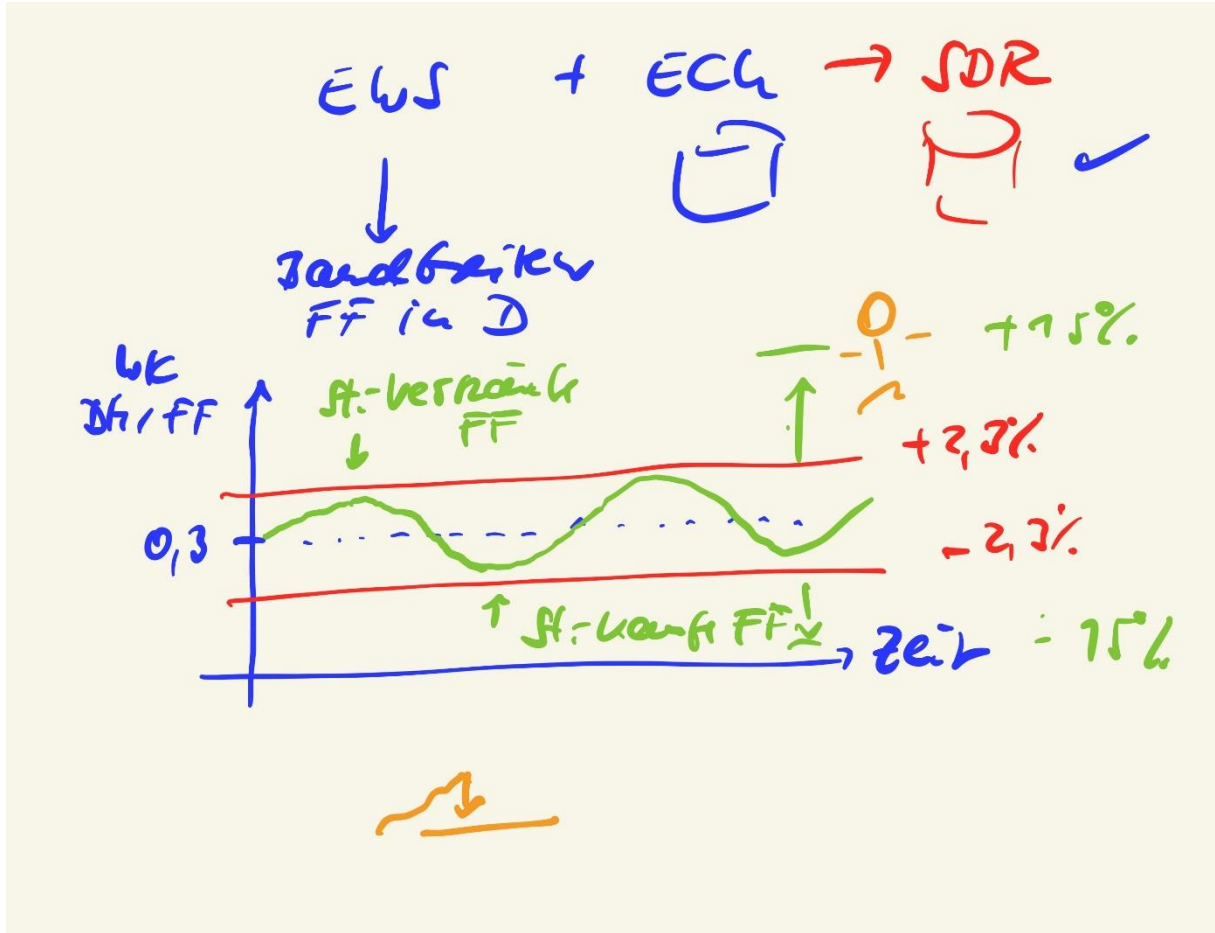 EWS + ECU → SDR
Bandbreiten
FF in D
WK
DM/FF
St.-verkäufe
FF
+15%
+2,3%
0,3
-2,3%
St.-käufe FF
Zeit
-15%